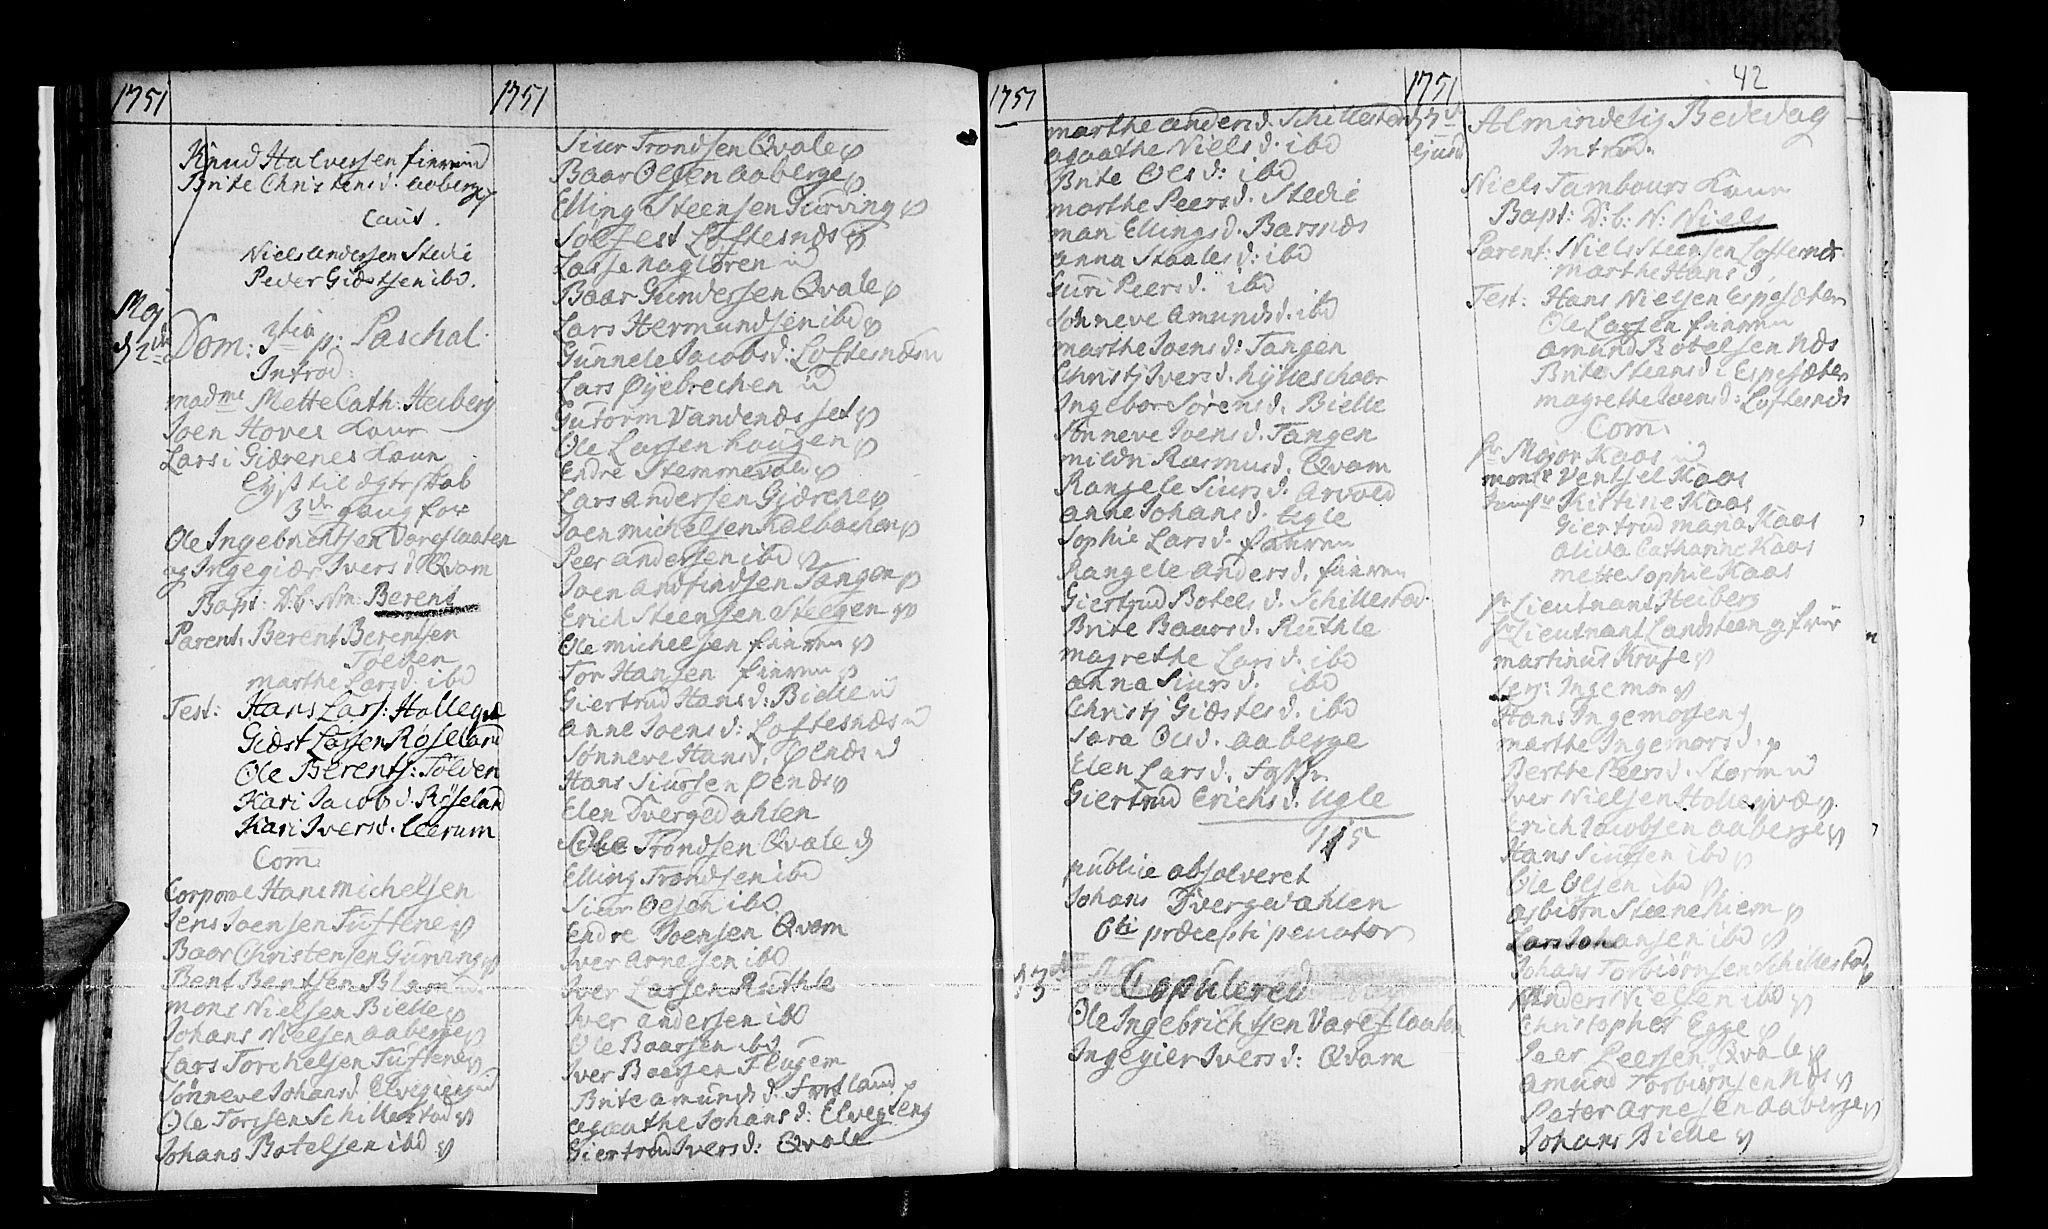 1751
Knud Halversen finven
Brite Christensd. aaberge
Caut.
Niels andersen Stedie
Peder Giæstsen ibd.
Maj
d 2den Dom: 3tia p: Paschal.
Introd:
madme Mette Cath: Heiberg
Joen Hoves Kaun
Lars i Giærenes Kaun
Lyst til ægteskab
3de gang for
Ole Ingebrichtsen Vareflaaten
og Ingegiær Ivers d Qvam
Bapt: D. b. Nn: Berent
Parent. Berent Berentsen
Tolden
marthe Lars d. ibd
Test: Hans Lars: Hollegvæ
Giæst Lassen Røseland
Ole Berents: Tolden
Kari Jacobs d. Røseland
Kari Ivers d. Leerum
Com
Corporal Hans michelsen
Jens Joensen Tuftene
Baar Christensen Gurving
Bent Bentsen
mons Nielsen Bielle
Johans Nielsen aaberge
Lars Torchelsen Tuftene
Sønneve Johansd. Elvegieng
Ole Torssen Schillestad
Johans Botelsen ibd
1751
Siur Trondsen Qvale
Baar Olsen aaberge
Elling Steensen Gurving
Solfest Loftesnæs
Lasse nagløren
Baar Gundersen Qvale
Lars Hermundsen ibd
Gunnele Jacobs d: Loftesnæs
Lars Øyebrechen
Gutorm Vandenæs
Ole Larsen Haugen
Endre Stemmevold
Lars andersen Giærene
Joen michelsen Kalbachen
Peer andersen ibd
Joen andfindsen Tangen
Erich Steensen Steegen
Ole michelsen finven
Tor Hansen finven
Giertrud Hans d: Bielle
anne Joens d: Loftesnæs
Sønneve Hans d. Øenæs
Hans Siursen Øenæs
Elen Dvergedahlen
Ole Trondsen Qvale
Elling Trondsen ibd
Siur Olsen ibd
Endre Joensen Qvam
Iver arnesen ibd
Iver Larsen Ruthle
Iver andersen ibd
Ole Baarsen ibd
Iver Baarsen Flugem
Brite amunds d. Fortland
agathe Johans d. Elvegieng
Giertrud Ivers d: Qvale
1751
marthe anders d. Schillestad
agathe Niels d. ibd
Brite Ols d: ibd
marthe Peers d. Stedie
mari Ellings d. Barsnæs
anna Staales d: ibd
Guri Peers d. ibd
Sønneve Amunds d. ibd
marthe Joens d: Tangen
Christj Ivers d. hylleschaar
Ingebor Sørens d. Bielle
Sønneve Joens d. Tangen
mildri Rasmus d. Qvam
Rangele Siurs d. Arvold
anne Johans d. Ugle
Sophie Lars d. finven
Rangele anders d. finven
Giertrud Botels d. Schillestad
Brite Baars d. Ruthle
magrethe Lars d. ibd
anna Siurs d. ibd
Christj Giæstes d. ibd
Sara Ols d. aaberge
Elen Lars d.
Giertrud Erichs d. Ugle
115
publice absolveret
Johans Tvergedahlen
6ti præcepti peccator
d 3de Copulered
Ole Ingebrichtsen Vareflaaten
Ingegier Ivers d: Qvam
1751
42
Almindelig Bededag
Introd.
Niels Tambours Kaun
Bapt: D: b: N: Niels
Parent: Niels Steensen Loftesnæs
marthe Hans d.
Test: Hans Nielsen Espesæter
Ole Larsen finven
amund Botelsen næs
Brite Steens d: Espesæter
magrethe Joens d: Loftesnæs
Com.
hr Major Kaas
monsr Ventsel Kaas
Kirstine Kaas
Giertrud maria Kaas
Oliva Catharine Kaas
mette Sophie Kaas
hr Lieutnant Heiberg
hr Lieutnant Landsteen og frue
martinus Kruse
Ingemor
Hans Ingemorsen
marthe Ingemors d.
Berthe Peers d. Storm
Iver Nielsen Hollegvæ
Erich Jacobsen aaberge
Hans Siursen ibd
Ole Olsen ibd
asbiørn Steenehiem
Lars Johansen ibd
Johans Torbiørnsen Schillestad
Anders Nielsen ibd
Christopher Egge
Peer Leersen Qvale
Amund Torbiørnsen Næs
Peter Arnesen aaberge
Johans Bielle